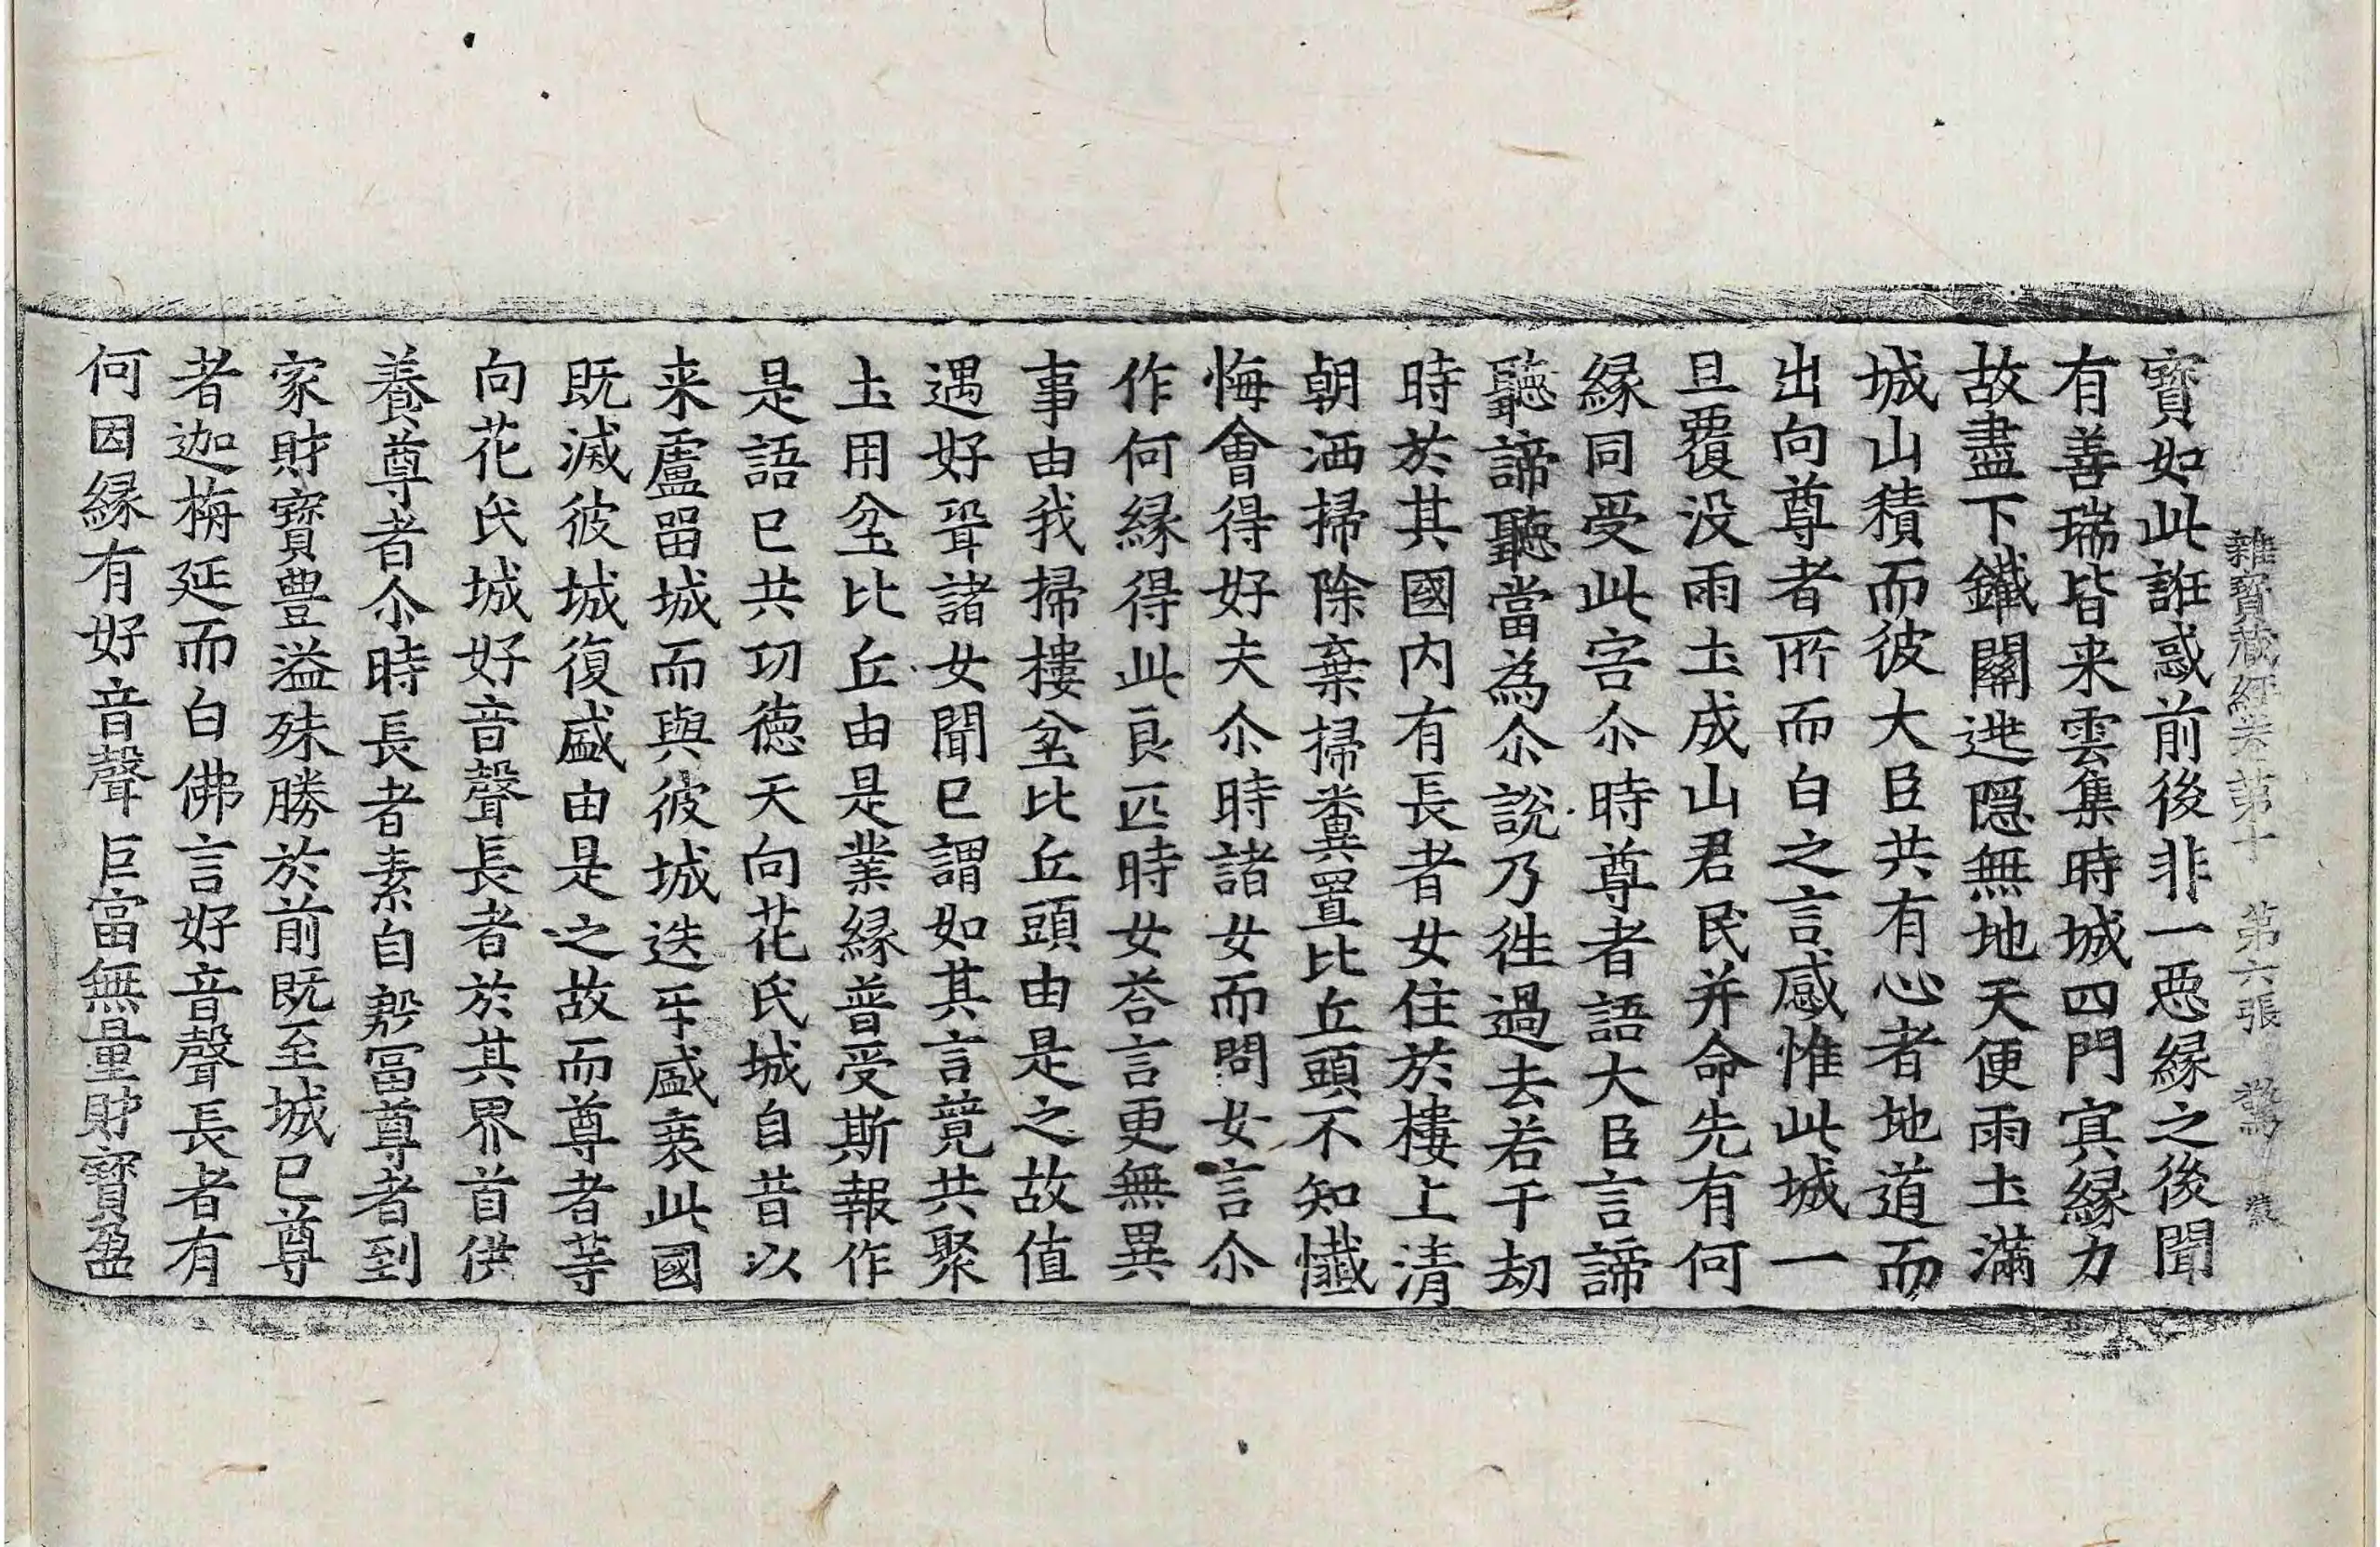 雜寶藏経卷第十 第六張 驚
寳如此誑惑前後非一惡縁之後聞
有善瑞皆来雲集時城四門㝠縁力
故盡下鐵關逃隠無地天便雨土滿
城山積而彼大臣共有心者地道而
出向尊者所而白之言感惟此城一
旦覆没雨土成山君民并命先有何
縁同受此害尒時尊者語大臣言諦
聽諦聽當為尒說乃徃過去若干劫
時於其國内有長者女住於樓上清
朝洒掃除棄掃糞置比丘頭不知懴
悔會得好夫尒時諸女而問女言尒
作何縁得此良匹時女荅言更無異
事由我掃樓坌比丘頭由是之故值
遇好聟諸女聞已謂如其言竟共聚
土用坌比丘由是業縁普受斯報作
是語已共㓛德天向花氏城自昔以
来盧留城而與彼城迭㸦盛衰此國
既滅彼城復盛由是之故而尊者等
向花氏城好音聲長者於其界首供
養尊者尒時長者素自殷冨尊者到
家財寳豊溢殊勝於前既至城已尊
者迦栴延而白佛言好音聲長者有
何因縁有好音聲巨富無量財寳盈